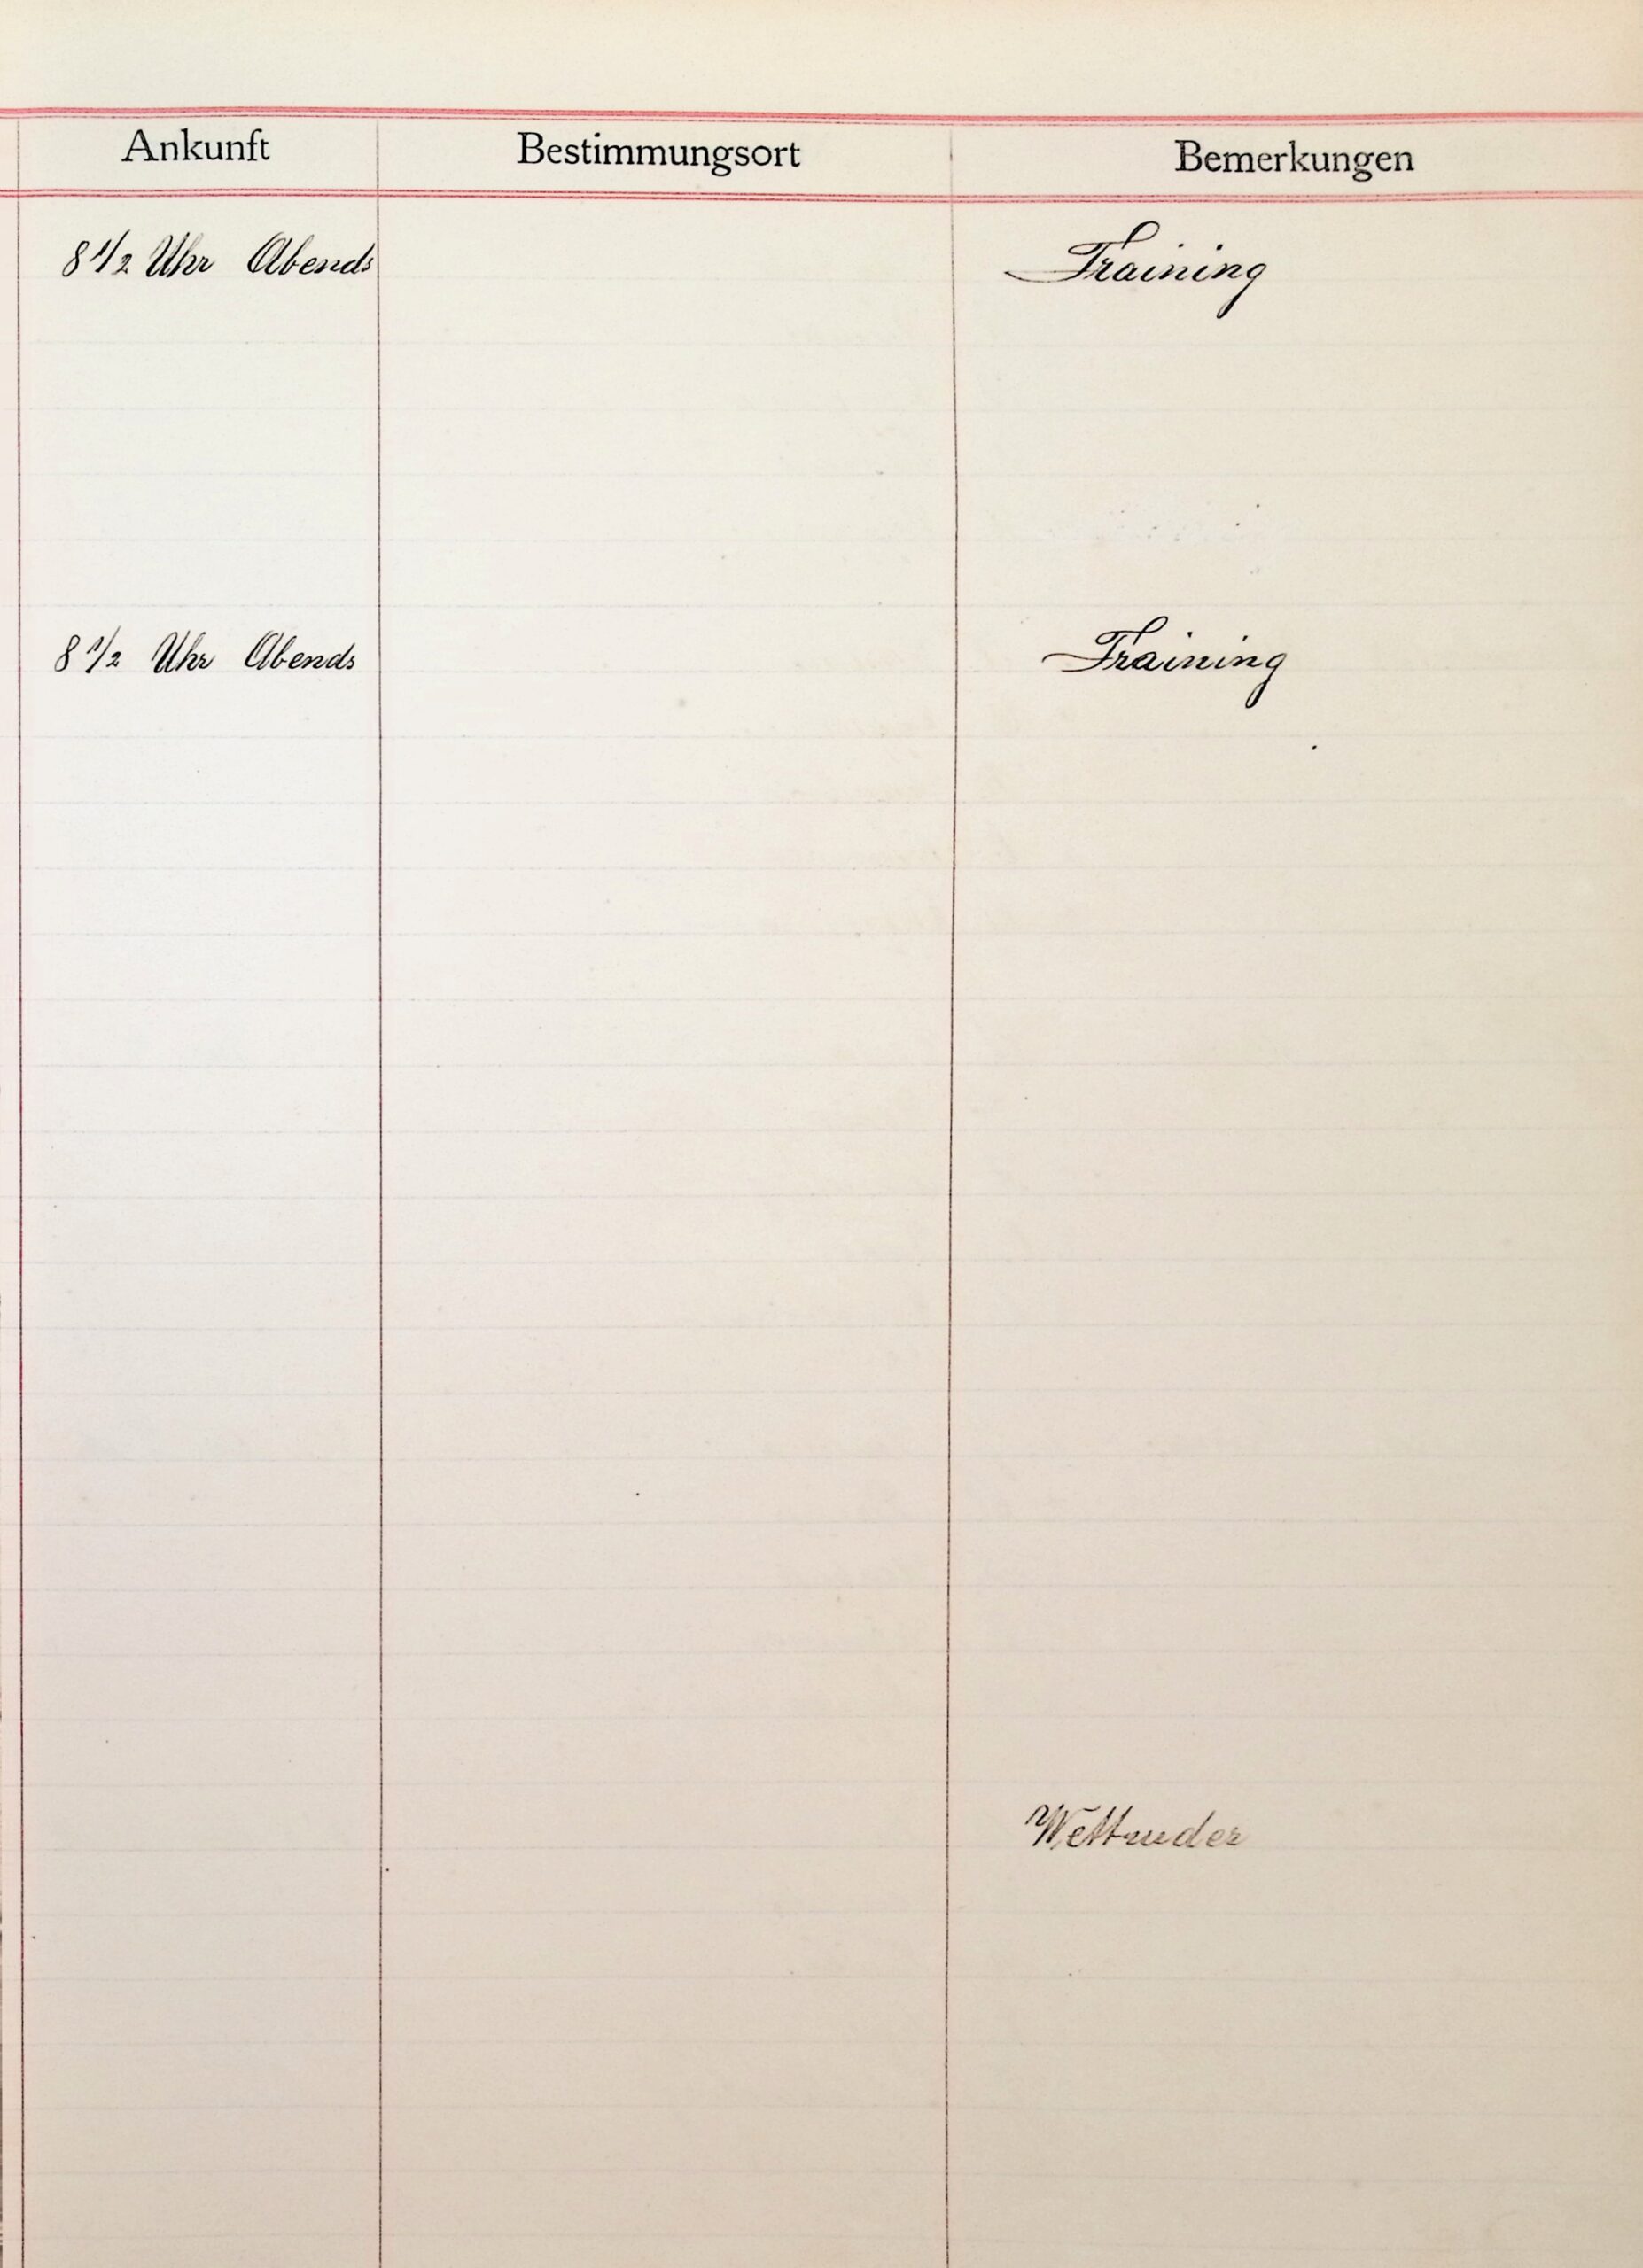 Ankunft Bestimmungsort Bemerkungen
8 1/2 Uhr Abends Training
8 1/2 Uhr Abends Training
Wettruder